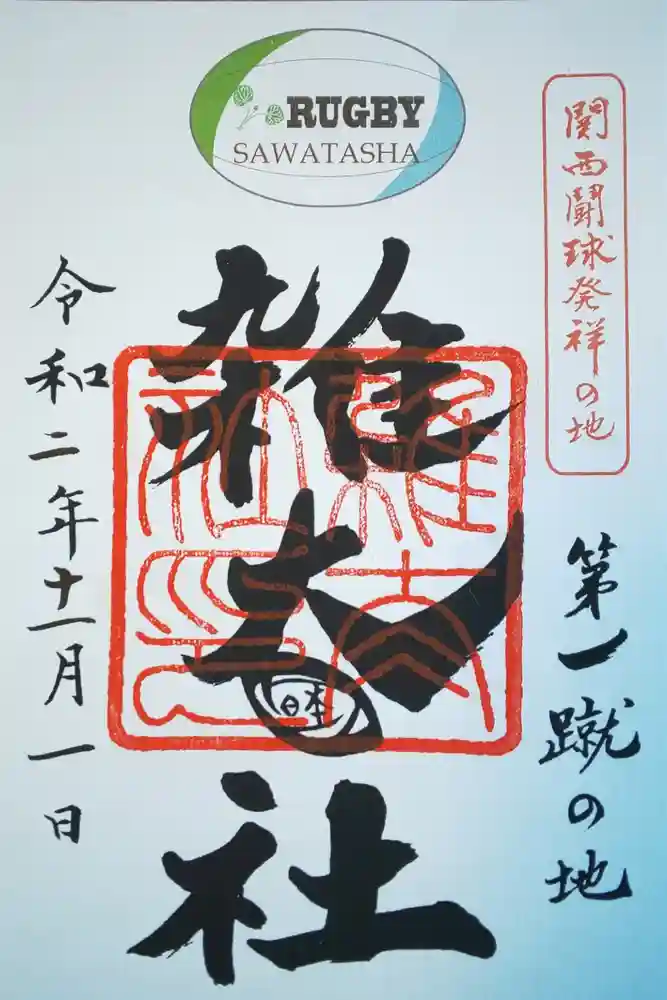 RUGBY
SAWATASHA
関西闘球発祥の地
第一蹴の地
雑太社
日本
令和二年十一月一日
雑太社印